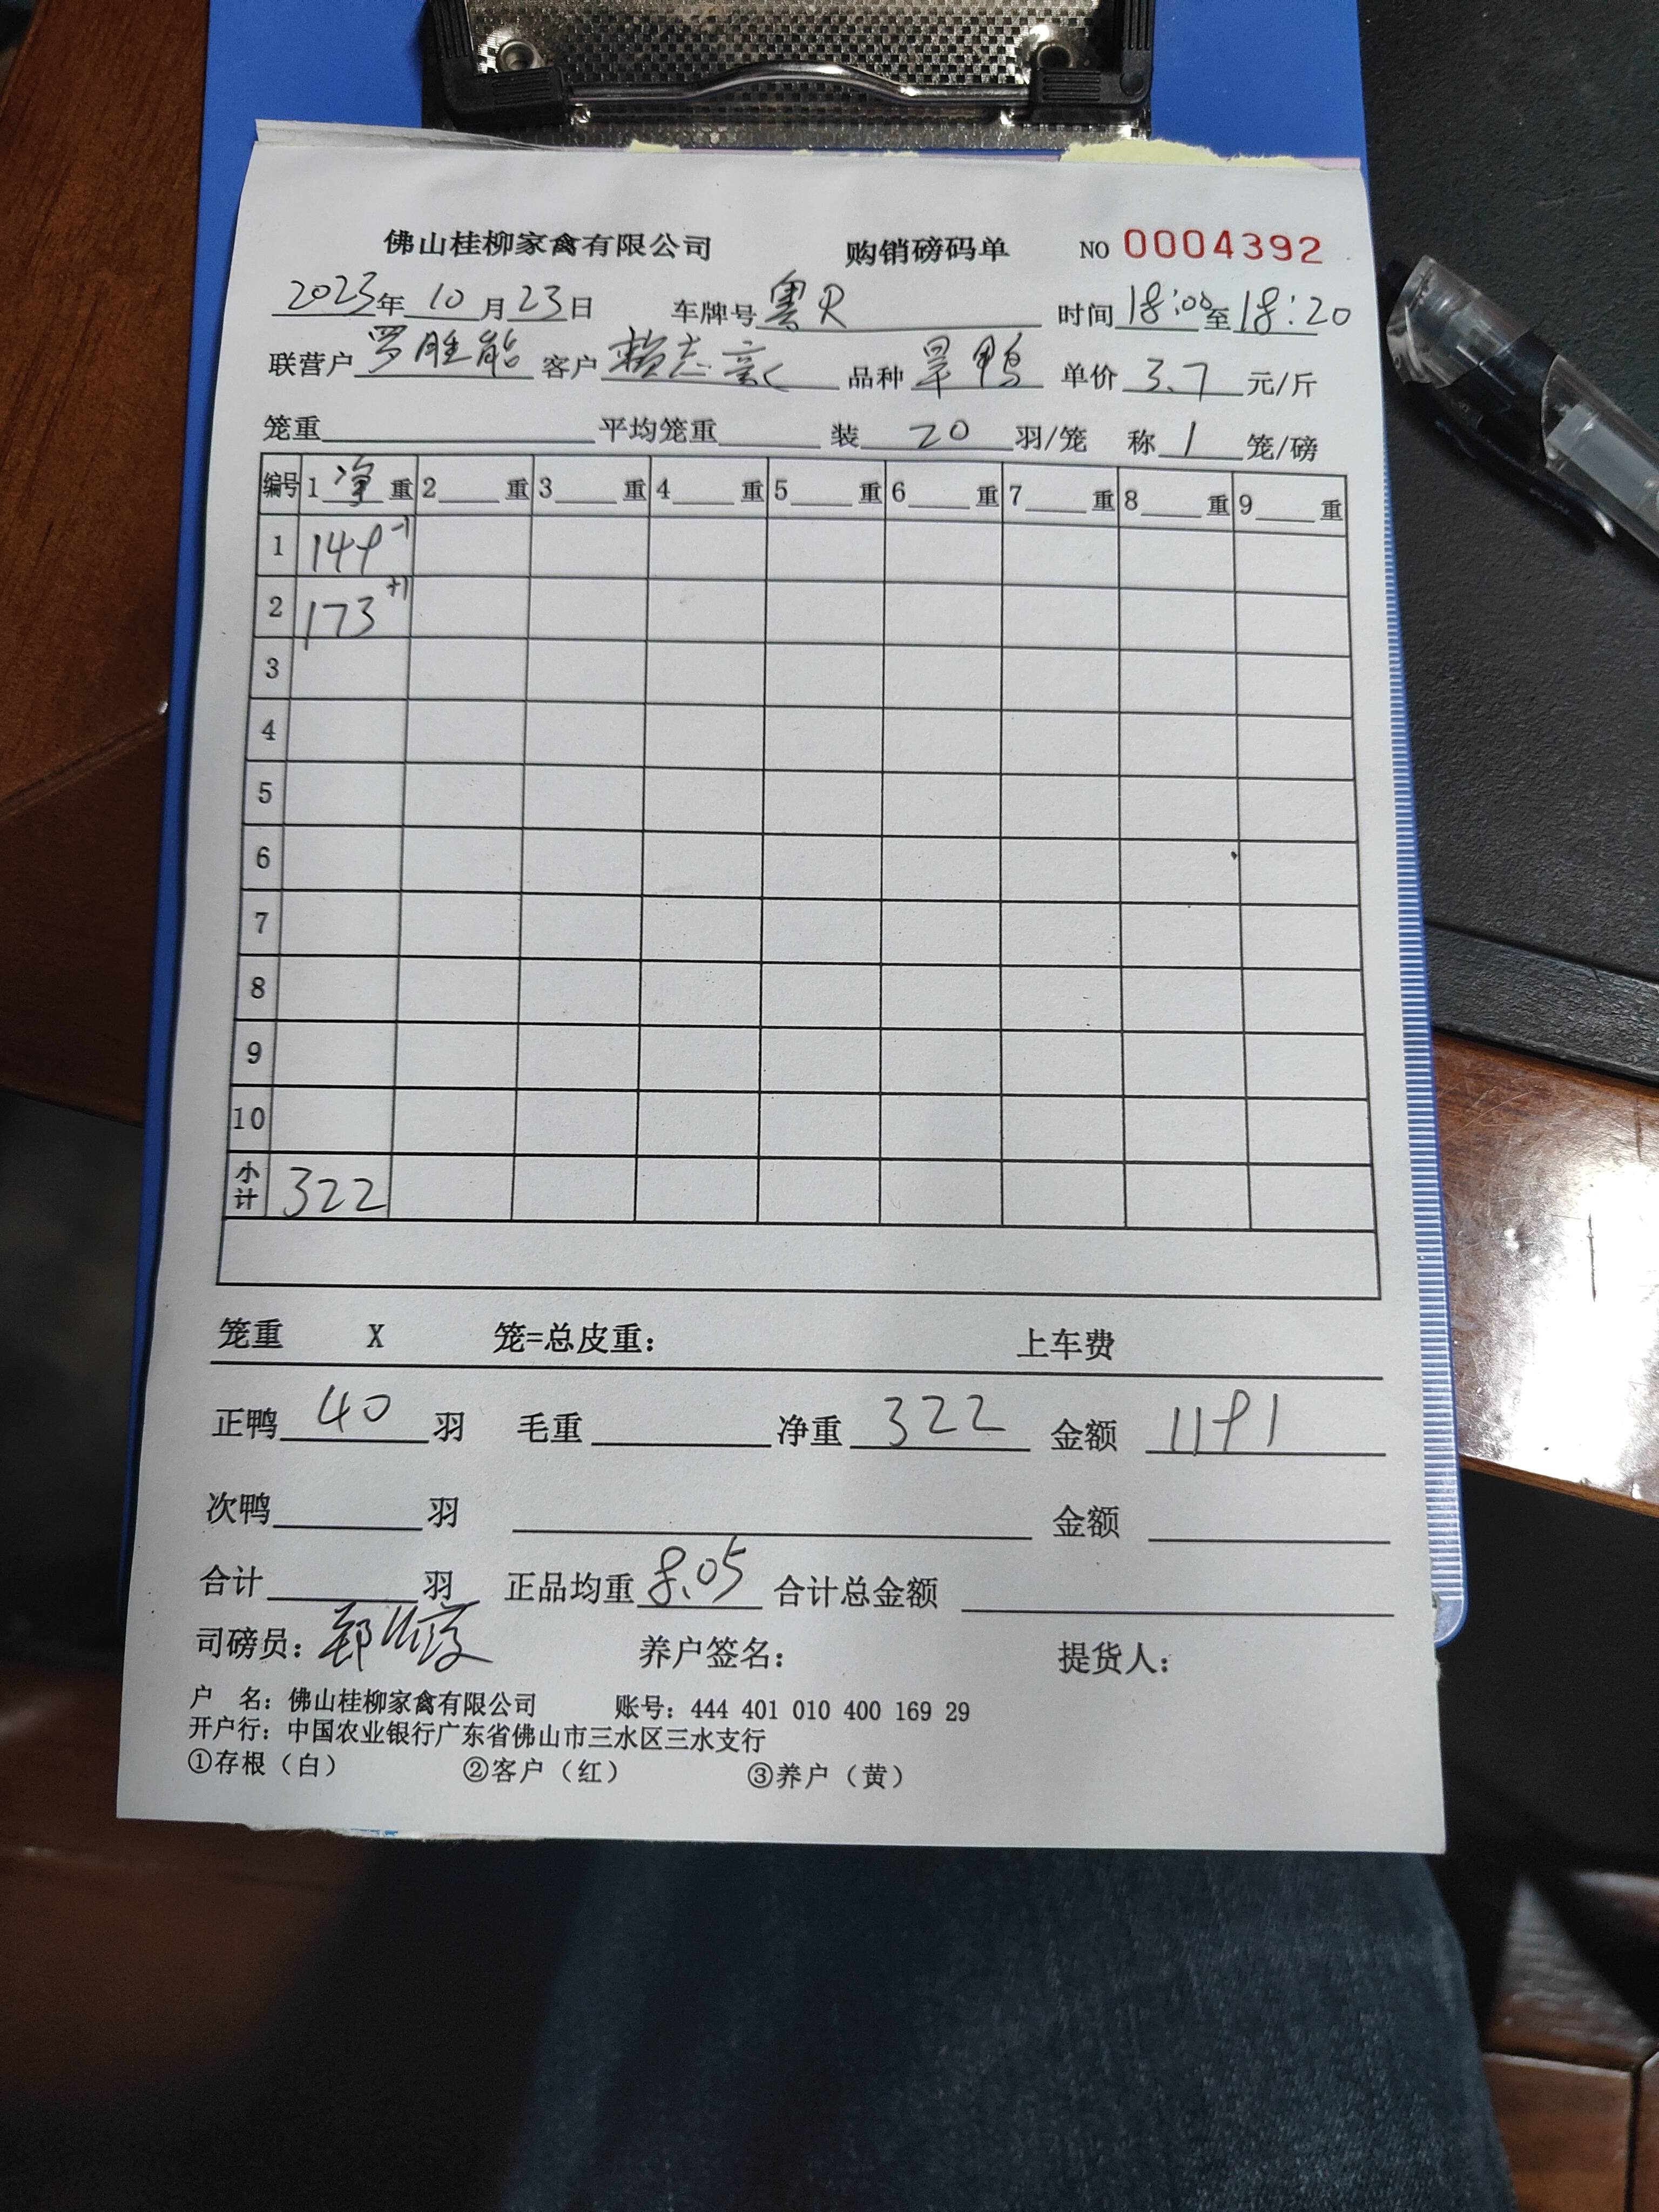 佛山桂柳家禽有限公司 购销磅码单 NO 0004392
2023年 10 月 23 日 车牌号 粤R 时间 18:00 至 18:20
联营户 罗胜能 客户 赖志 品种 旱鸭 单价 3.7 元/斤
笼重 平均笼重 装 20 羽/笼 称 1 笼/磅
编号 1 净 重 2 重 3 重 4 重 5 重 6 重 7 重 8 重 9 重
1 149 -1
2 173 +1
3
4
5
6
7
8
9
10
小计 322
笼重 X 笼=总皮重： 上车费
正鸭 40 羽 毛重 净重 322 金额 1191
次鸭 羽 金额
合计 羽 正品均重 8.05 合计总金额
司磅员： 养户签名： 提货人：
户 名：佛山桂柳家禽有限公司 账号：444 401 010 400 169 29
开户行：中国农业银行广东省佛山市三水区三水支行
①存根（白） ②客户（红） ③养户（黄）